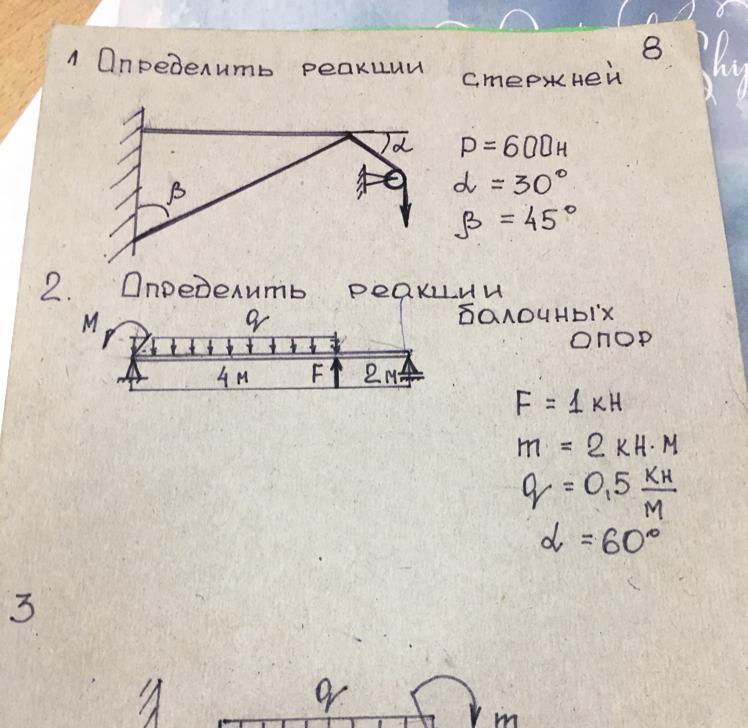 8
1 Определить реакции стержней
α
β
P = 600н
α = 30°
β = 45°
2. Определить реакции
балочных
опор
M
q
4 м F 2 м
F = 1 кн
m = 2 кн·м
q = 0,5 кн/м
α = 60°
3
q
m